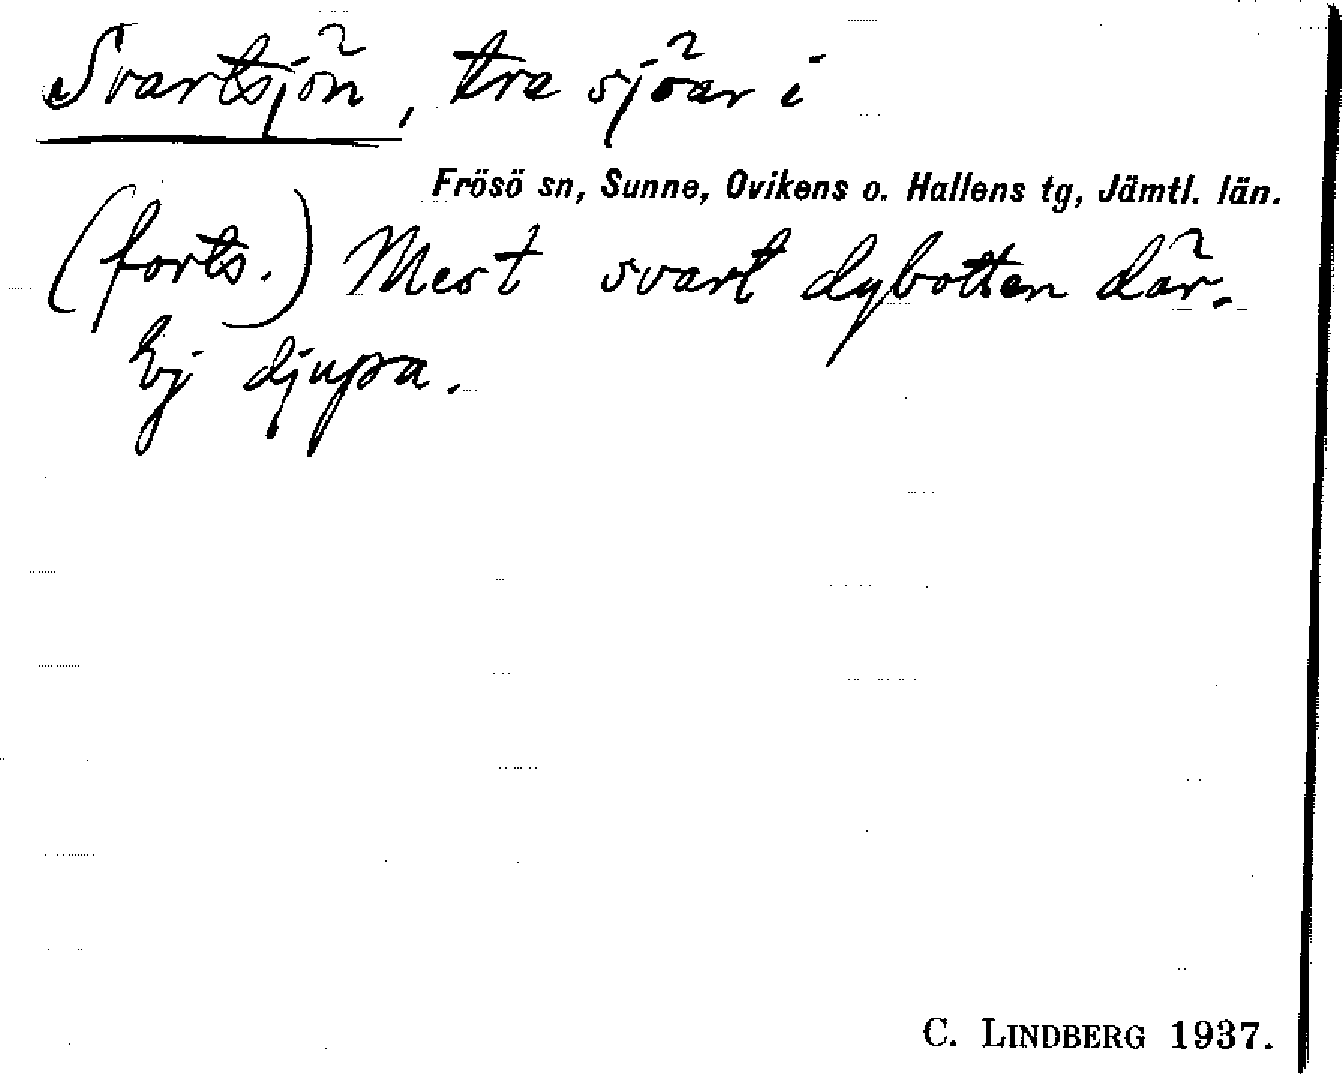 Svartsjön, tre sjöar i
Frösö sn, Sunne, Ovikens o. Hallens tg, Jämtl. län.
(forts.) Mest svart dybotten där.
Ej djupa.
C. LINDBERG 1937.